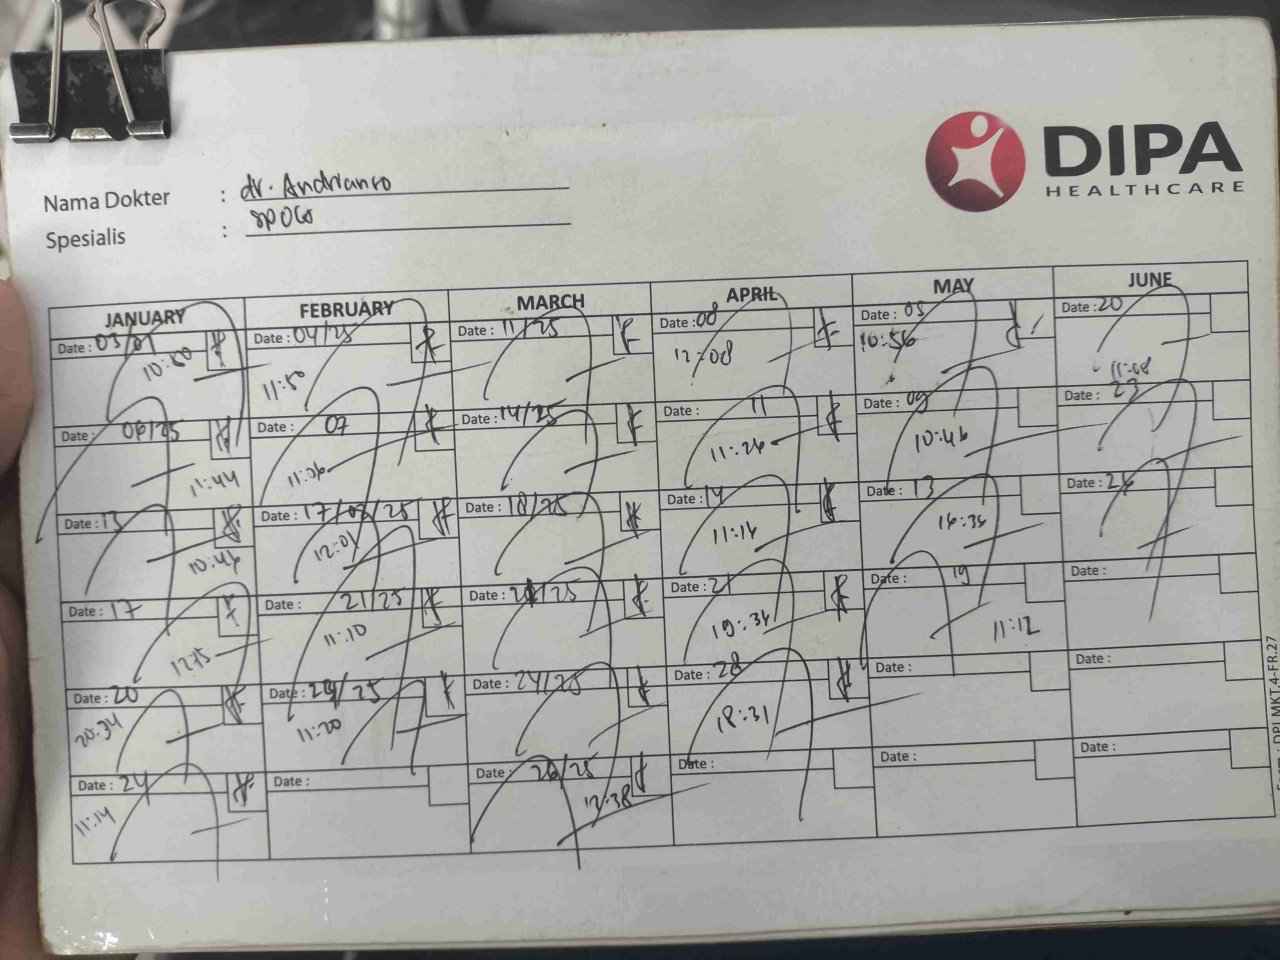 DIPA
HEALTHCARE
Nama Dokter : dr. Andrianto
Spesialis :
JANUARY FEBRUARY MARCH APRIL MAY JUNE
Date : 03/01 Date : 04/25 Date : 11/25 Date : 08 Date : 05 Date : 20
11:50 12:08 10:56 11:08
Date : 06/25 Date : 07 Date : 14/25 Date : 11 Date : 09 Date : 23
11:44 11:06 11:26 10:46
Date : 13 Date : 17/02/25 Date : 18/25 Date : 14 Date : 13 Date :
10:46 12:01 11:16 16:36
Date : 17 Date : 21/25 Date : Date : 21 Date : 19 Date :
11:10 19:36 11:12
Date : 20 Date : Date : 24/25 Date : 28 Date : Date :
20:34 11:20 18:31
Date : 24 Date : Date : 26/25 Date : Date : Date :
11:14 12:38